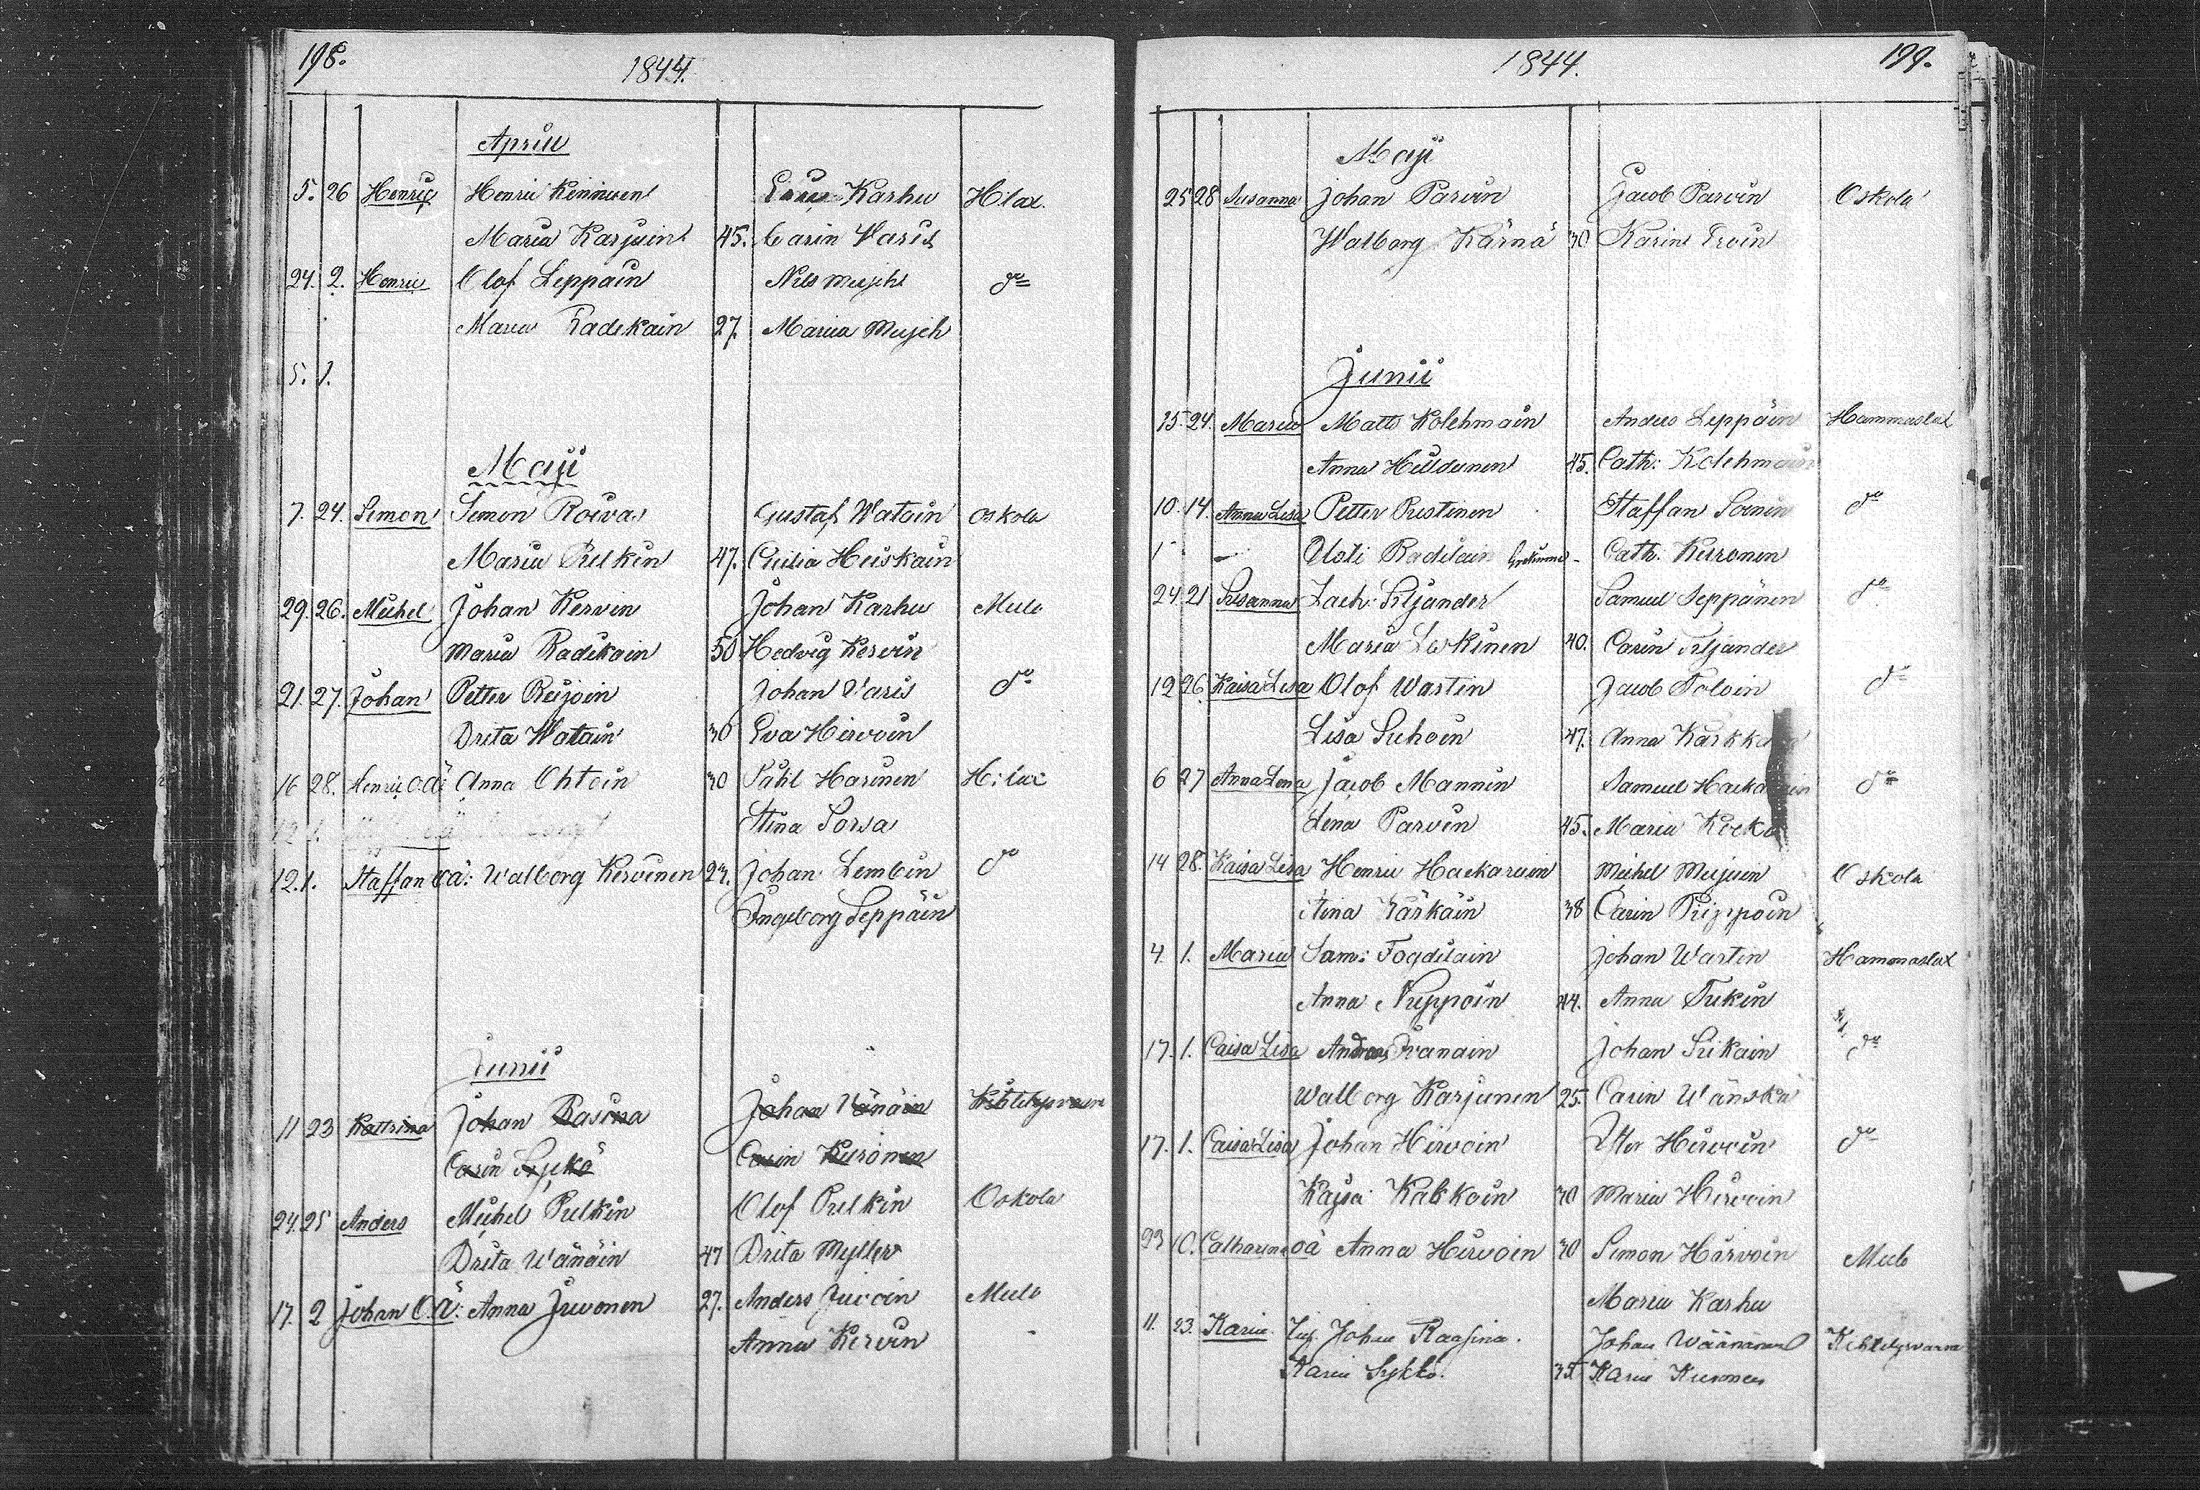 198.
1844.
Aprill
5. 26 Henric Henric Karhu Hlax.
Maria Karjuin 45. Carin Waris
24. 2. Henric Olof Leppäin Nils Mujeh do
Maria Radikain 27. Maria Mujeh
5. 1.
Maji
7. 24. Simon Simon Roivas Gustaf Watain Oskola
Maria Pulkin 47. Cecilia Heiskain
29. 26. Michel Johan Kervin Johan Karhu Mulo
Maria Radikain 50 Hedvig Kervin
21. 27. Johan Petter Reijoin Johan Varis do
Brita Watain 30 Eva Hirvoin
16 28. Henric o.ä: Anna Ohtoin 30 Påhl Harinen H:lax
12. 1. Stina Sorsa
12. 1. Staffan oä: Walborg Kervinen 27. Johan Lemboin do
Ingeborg Leppäin
Junii
11 23 Kattrina Johan Rasina Johan Vänäin Kihtelysvaara
Carin Sykö Carin Kuronen
24. 25 Anders Michel Pulkin Olof Pulkin Oskola
Brita Wänäin 47 Brita Myller
17. 2 Johan O.Ä: Anna Juvonen 27. Anders Juvoin Mulo
Anna Kervin
1844.
199.
Maji
25 28 Susanna Johan Parvin Jacob Parvin Oskola
Walborg Kärnä 30 Karin Ervin
Junii
15. 24. Maria Matts Kolehmain Anders Leppäin Hammaslax
Anna Hildunen 45. Cath: Kolehmain
10. 14. Anna Lisa Petter Pustinen Staffan Soinin do
1 Radikain Cath. Kuronen
24. 21 Susanna Zach: Siljander Samuel Seppänen do
Maria Leskinen 40. Carin Siljander
12 26 Kaisa Lisa Olof Wastin Jacob Toloin do
Lisa Suhoin 47. Anna Karkka
6 27 Anna Lena Jacob Mannin Samuel Hacka do
Lena Parvin 45. Maria Kock
14 28. Kaisa Lisa Henric Hackarain Michel Mujuin Oskola
Stina Käskäin 38 Carin Piippoin
4. 1. Maria Sam: Fogdilain Johan Wartin Hammaslax
Anna Nuppoin 44. Anna Tukin
17. 1. Caisa Lisa Anders Ivanain Johan Sikain do
Walborg Karjunen 25. Carin Wänskä
17. 1. Caisa Lisa Johan Hirvoin Petter Hirvoin do
Kajsa Kakkoin 30 Maria Hirvoin
23 10. Catharina oä Anna Hirvoin 30 Simon Härvoin Mulo
Maria Karhu
11. 23. Karin Johan Raasina. Johan Väänänen Kihtelysvaara
Karin Sykkö. 35 Karin Kuronen